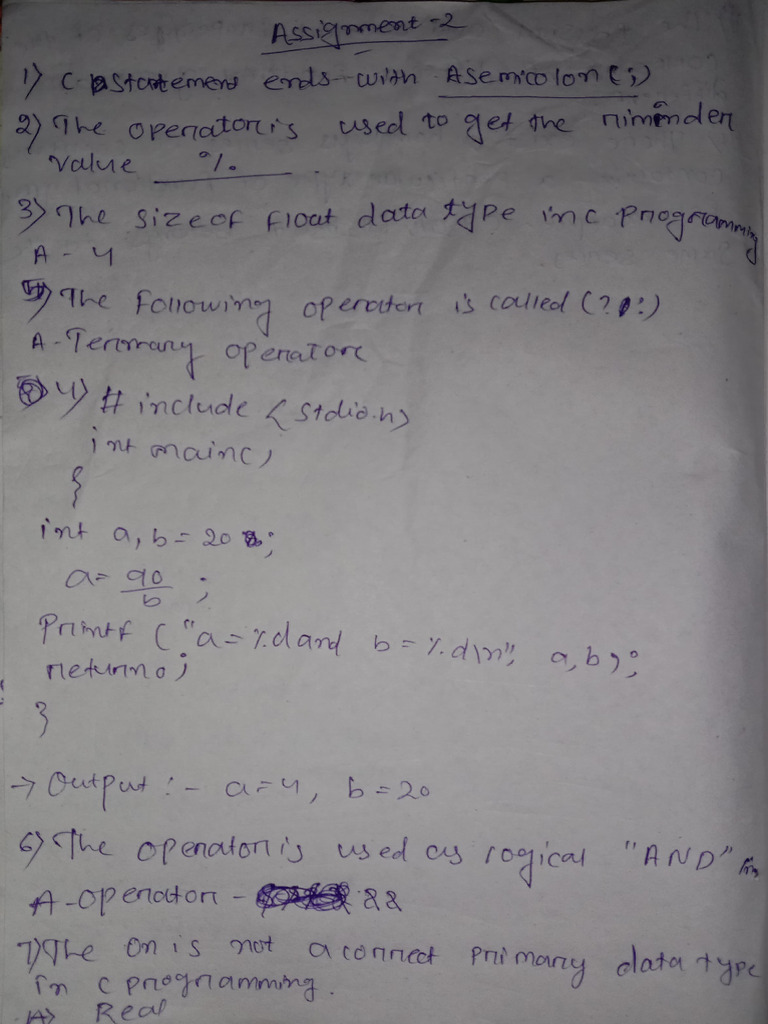 Assignment-2
1) C statement ends with A semicolon (;)
2) The operator is used to get the riminder
value %.
3) The size of float data type in c programming
A - 4
5) The Following operator is called (? :)
A - Terrnary operator
4) # include <stdio.h>
int main()
{
int a, b = 20;
a = 90/b ;
Printf ("a = %d and b = %d\n", a, b);
return 0;
}
→ Output :- a = 4, b = 20
6) The operator is used as logical "AND" in
A - operator - &&
7) The on is not a correct primary data type
in c programming.
A) Real